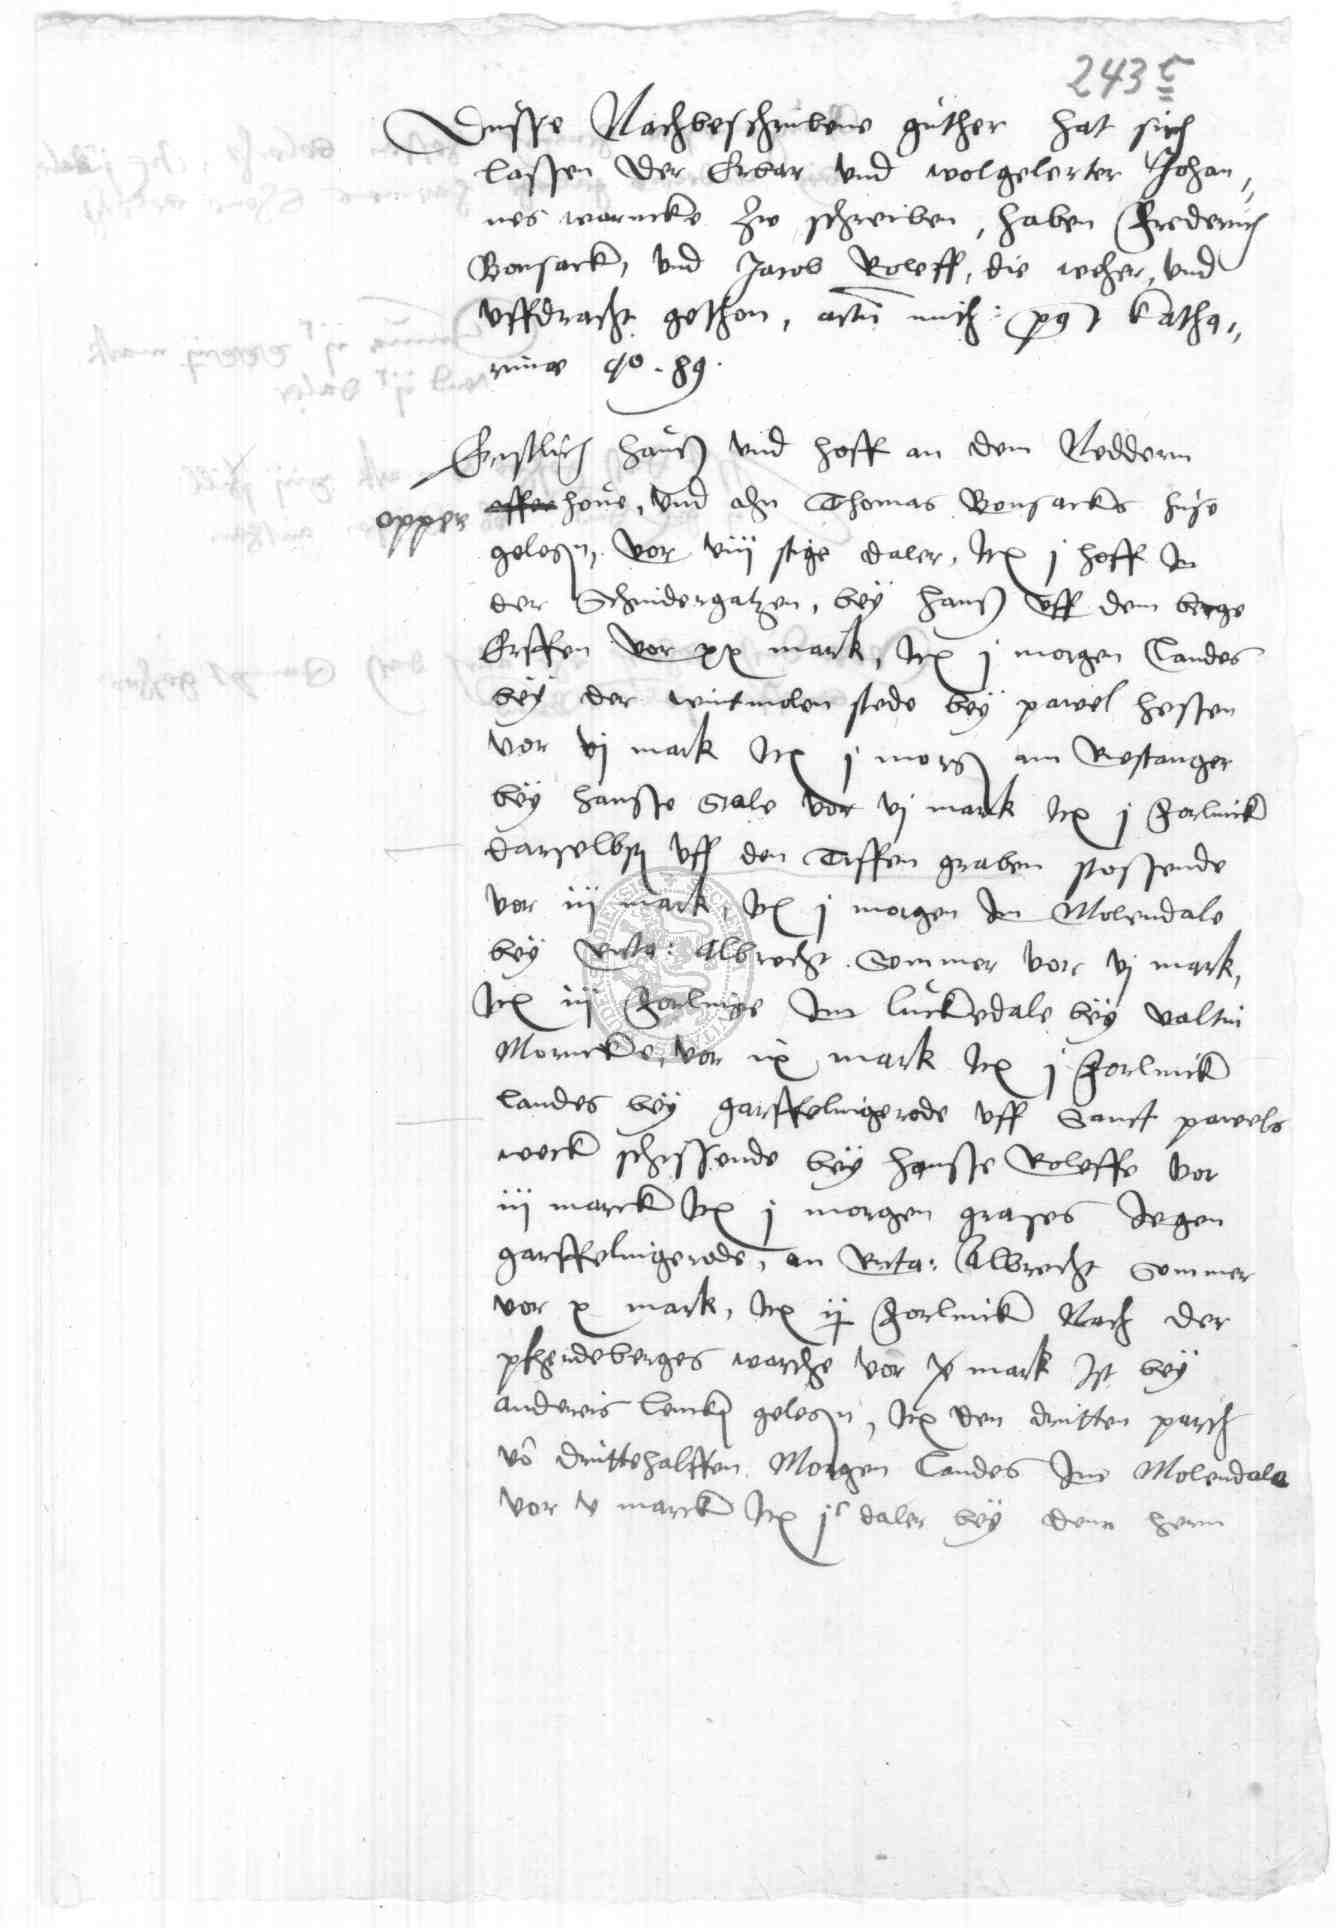 243 c
Dusse Nachbeschribene guther hat sich
lassen der Erbar und wolgelerter Johan„
nes warneke zw schreiben, haben Frederich
Bonsack, und Jacob Roleff, die weher, und
uffdracht gethon, post Katha„
rine ao. 89.
Erstlich hauß und hoff an dem Neddern
opper hove, und ahn Thomas Bonsacks huse
gelegen, vor viii stige daler, Itē j hoff In
der Schmidergatzen, bey hanß uff dem berge
Erffen vor xx mark, Itē j morgen Landes
bey der wintmolen stede bey pawel hessen
vor vj mark Itē j morgē am Rostanger
bey hansse Stale vor vj mark Itē j Forlinck
darselbst uff den Tiffen graben stossende
vor iij mark, Itē j morgen In Molendale
bey Albrecht Sommer vor vj mark,
Itē iij Forlinge Im luckedale bey valtin
Mornecke, vor ix mark Itē j Forlinck
landes bey garffelingerode uff Sanct pawels
weck schissende bey hansse Roleffe vor
iij marck Itē j morgen grases Jegen
garffelingerode, an Albrecht Sommer
vor x mark, Itē ij Forlinck Nach der
pferdeberges warthe vor x mark Ist bey
gelegen, Itē den dritten parth
vō drittehalffen Morgen Landes Im Molendale
vor v marck Itē jc daler bey dem herrn